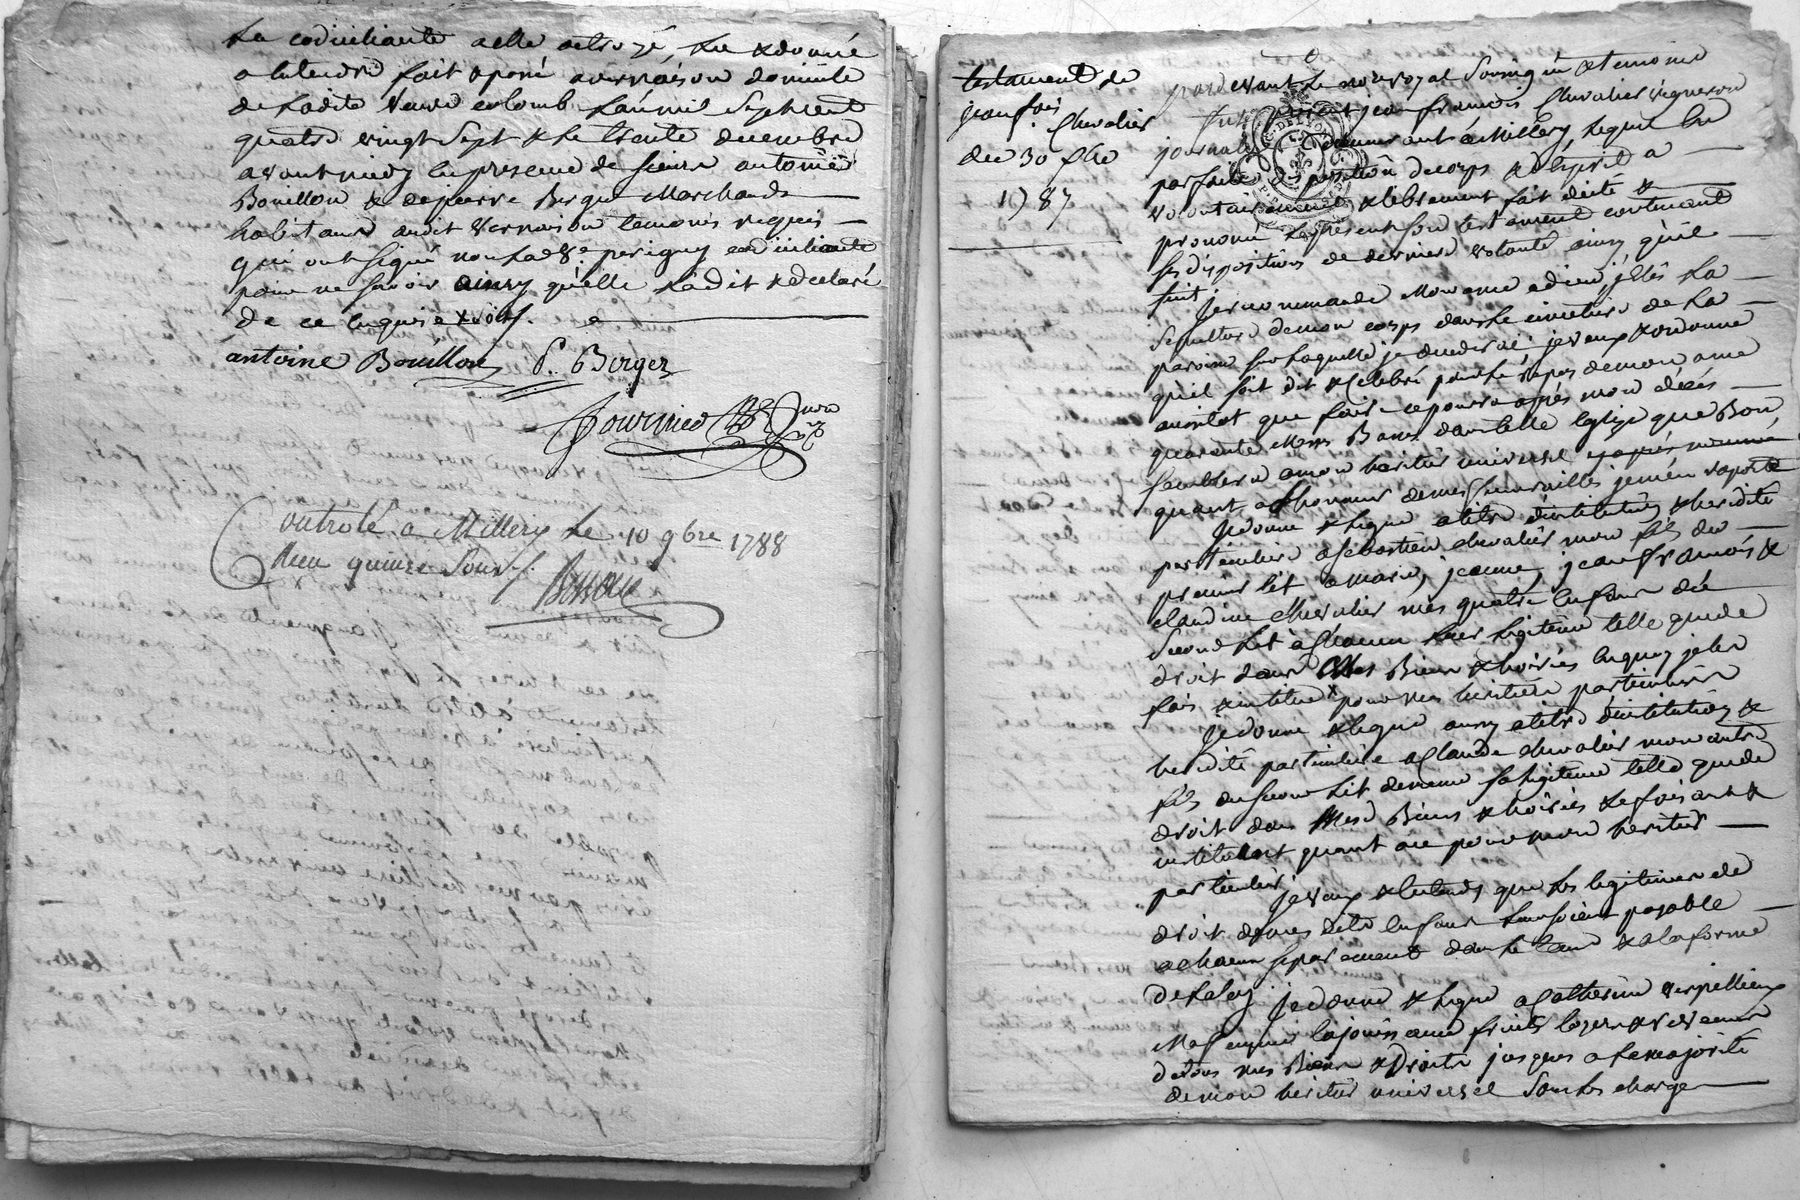 La codiciliante acte octroyé, lu & donné
a entendre fait & passé a vernaison domicile
de ladite veuve colomb l'an mil sept cent
quatre vingt sept & le trente decembre
avant midy en presence de sieurs antoine
Bouillon & de pierre Berger Marchands
habitans audit vernaison temoins requis
qui ont signé non lad. ve perigny codiciliante
pour ne savoir ainsy qu'elle l'a dit & declaré
de ce enquise &
antoine Bouillon P. Berger
Fournier
Controlé a Millery le 10 9bre 1788
Reçu quinze sous
testament de
jean fois
Chevalier
du 30 Xbre
1787
pardevant le no.re royal soussigné & temoins
fut present jean francois Chevalier vigneron
journalier demeurant à Millery, lequel en
parfaite disposition de corps & d'esprit a
volontairement & librement fait dicté &
prononcé le present son testament contenant
ses dispositions de derniere volonté ainsy qu'il
suit
je recommande Mon ame a dieu, j'élis la
sepulture de mon corps dans le cimetiere de la
paroisse sur laquelle je decederai; je veux & ordonne
qu'il soit dit & celebré pour le repos de mon ame
aussitot que faire ce poura après mon décés
quarante Messes Basses dans telle eglise que Bon
semblera a mon heritier universel cy après nommé
quant a l'honneur de mes funerailles je m'en raporte
je donne & legue a titre d'institution & heredité
particuliere a Sebastien chevalier mon fils du
premier lit a marie, jeanne, jean francois &
claudine Chevalier mes quatre enfans du
second lit à chacun leur legitime telle que de
droit dans Mes Biens & hoiries en quoy je les
fais & institue pour mes heritiers particuliers
je donne & legue aussy a titre d'institution &
heredité particuliere a Claude chevalier mon autre
fils du second lit de meme sa legitime telle que de
droit dans Mesd Biens & hoiries le faisant &
instituant quant à ce pour mon heritier
particulier
je veux & entends que les legitimes de
droit de mes dits enfans leur soient payable
a chacun separement dans le tems & a la forme
de la loy
je donne & legue a Catherine verpillieux
Ma femme la jouissance fruits & revenus
de tous mes Biens & Droits jusques a la majorité
de mon heritier universel sous les charges